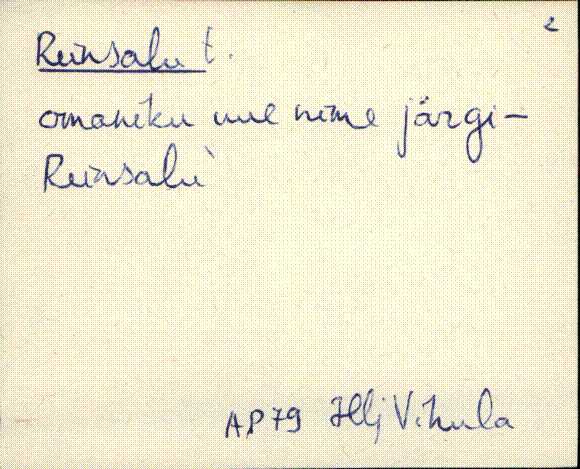 2
Reinsalu t.
omaniku uue nime järgi –
Reinsalu
AP79 Hlj Vihula